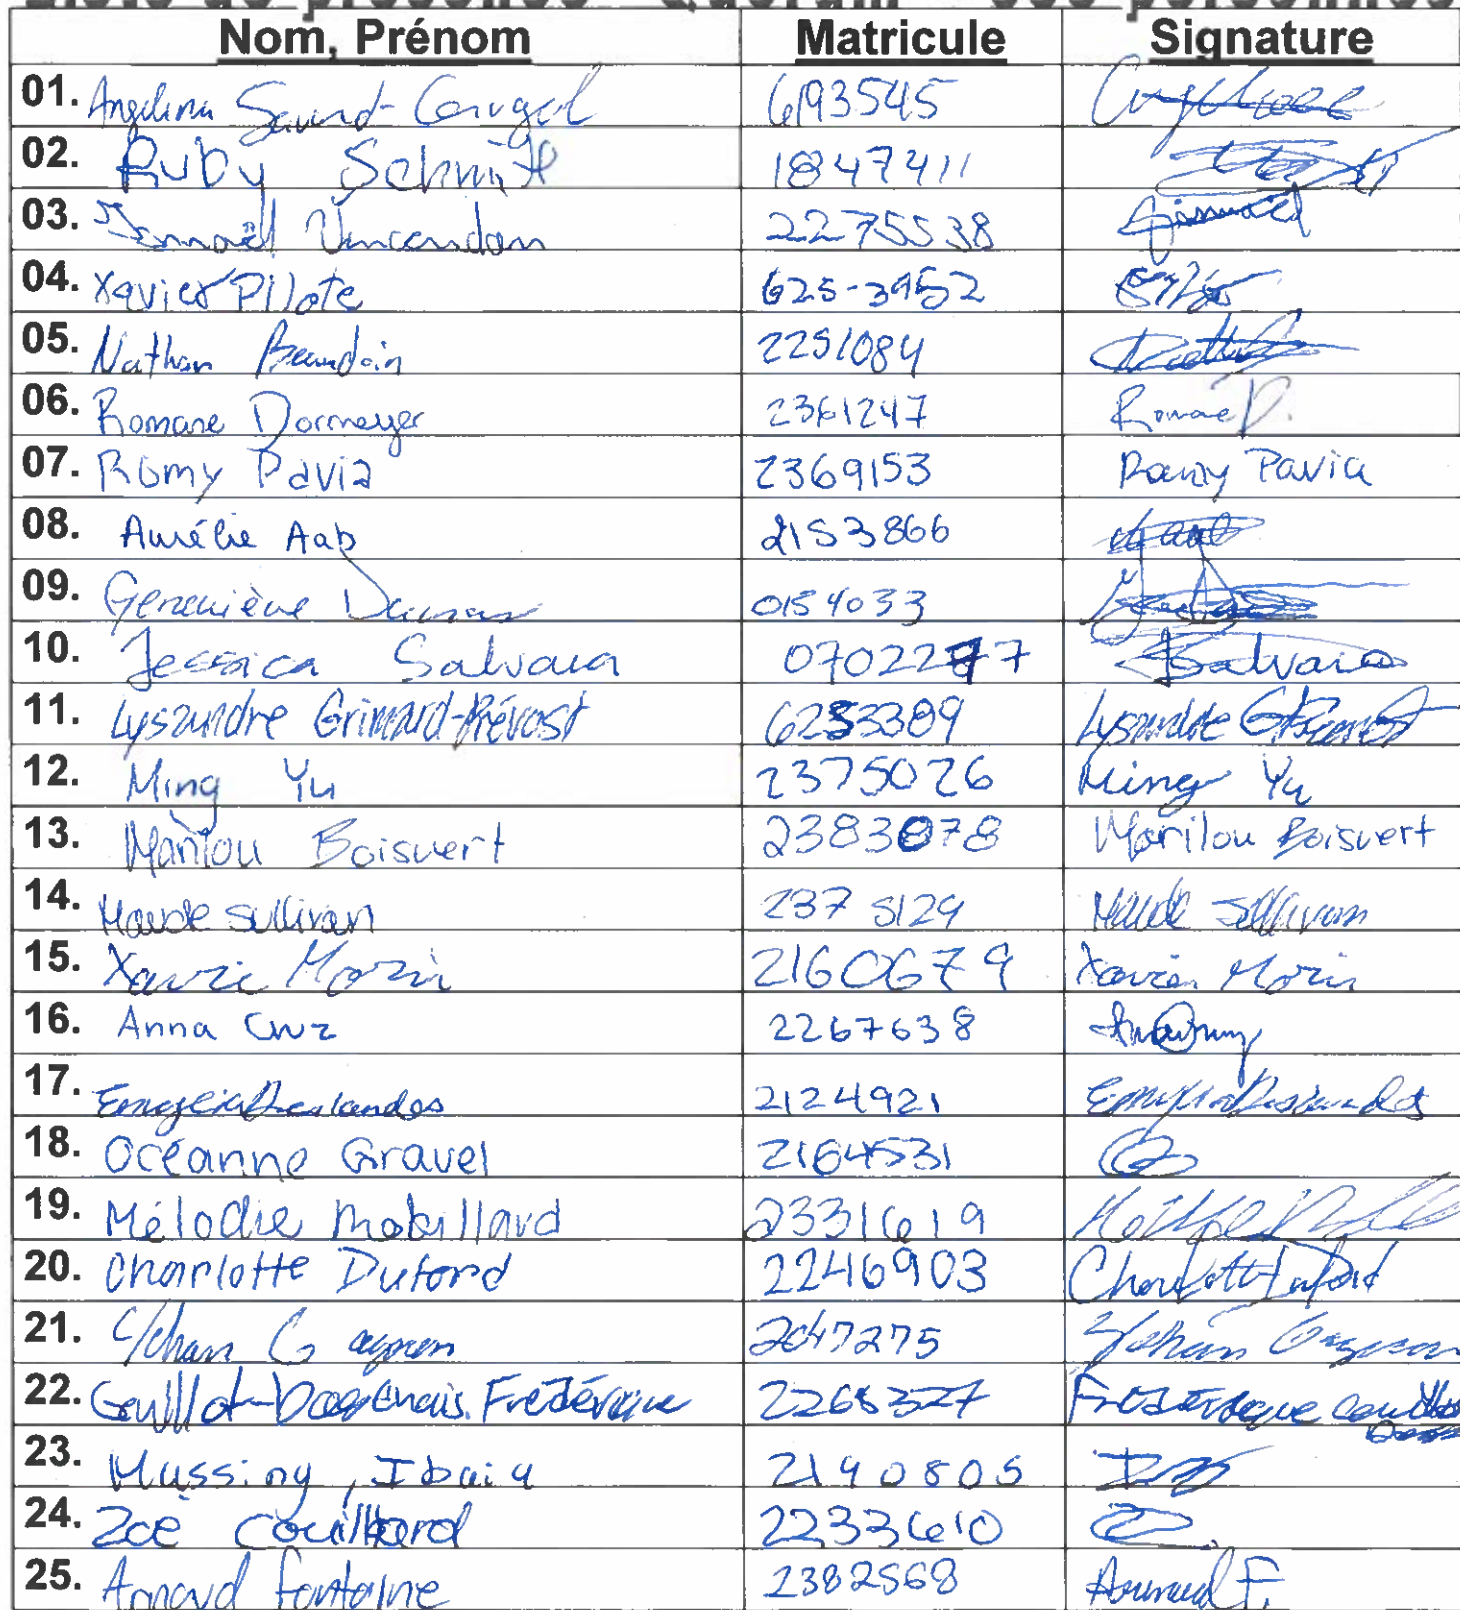 Liste de présence - Quorum - personnes
Nom, Prénom Matricule Signature
01. Angelina 6193545
02. Ruby Schmitt 1847411
03. Ismaël Vincendon 2275538 Ismaël
04. Xavier Pilote 625-3952
05. Nathan Beaudoin 2251084
06. Romane Dormeyer 2361247 Romane D.
07. Romy Pavia 2369153 Romy Pavia
08. Aurélie Aab 2153866
09. Geneviève 0154033
10. Jessica Salvaia 0702277 Salvaia
11. Lysandre Grimard-Prévost 6253389 Lysandre
12. Ming Yu 2375026 Ming Yu
13. Marilou Boisvert 2383078 Marilou Boisvert
14. Maude Sullivan 237 5129 Maude Sullivan
15. Xavier Morin 2160679 Xavier Morin
16. Anna Cruz 2267638
17. Deslandes 2124921
18. Océanne Gravel 2164531
19. Mélodie Robillard 2331619
20. Charlotte Duford 2246903 Charlotte Duford
21. Gagnon 2047275 Gagnon
22. Frédérique 2268327 Frédérique
23. Mussing, 2190805
24. Zoé Couillard 2233610
25. Arnaud Fontaine 2382568 Arnaud F.